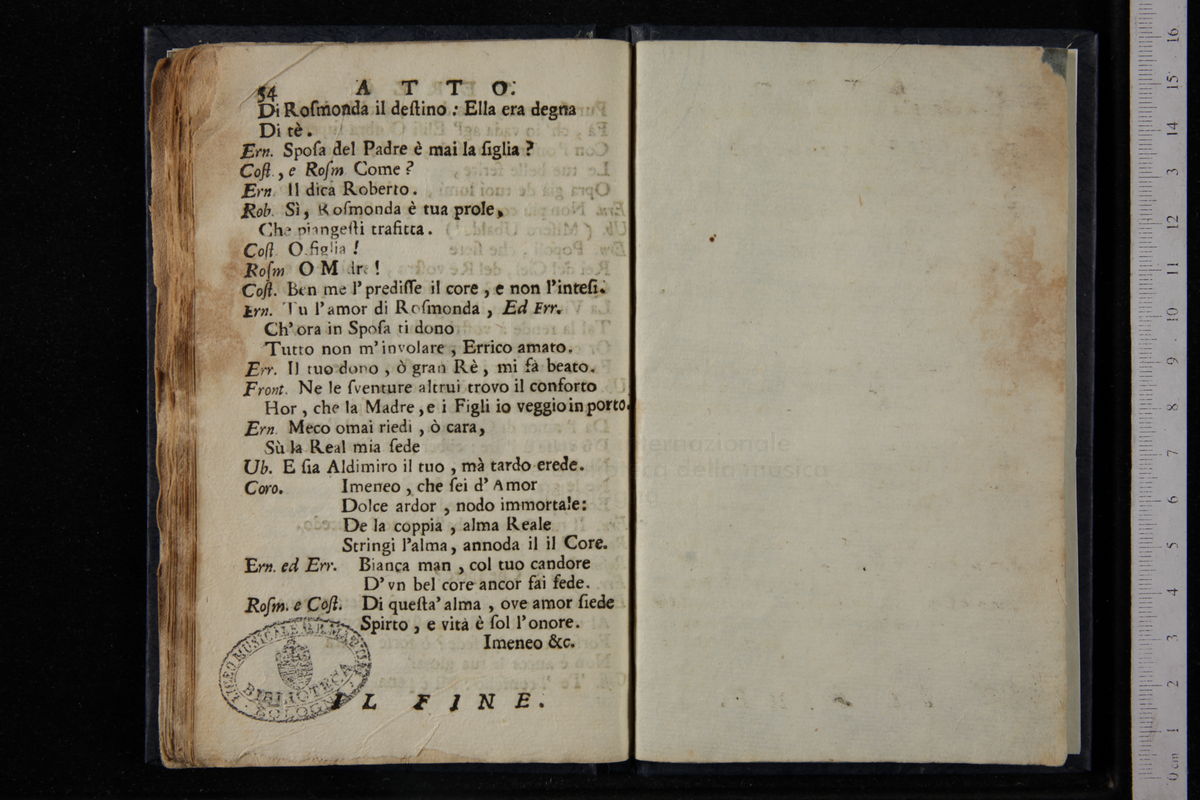 54 ATTO.
Di Roſmonda il deſtino: Ella era degna
Di tè.
Ern. Spoſa del Padre è mai la figlia?
Coſt., e Roſm. Come?
Ern. Il dica Roberto.
Rob. Sì, Roſmonda è tua prole,
Che piangeſti trafitta.
Coſt. O figlia!
Roſm O Madre!
Coſt. Ben me l'prediſſe il core, e non l'inteſi.
Ern. Tu l'amor di Roſmonda, Ed Err.
Ch'ora in Spoſa ti dono
Tutto non m'involare, Errico amato.
Err. Il tuo dono, ò gran Rè, mi fà beato.
Front. Ne le ſventure altrui trovo il conforto
Hor, che la Madre, e i Figli io veggio in porto.
Ern. Meco omai riedi, ò cara,
Sù la Real mia ſede
Ub. E ſia Aldimiro il tuo, mà tardo erede.
Coro. Imeneo, che ſei d'Amor
Dolce ardor, nodo immortale:
De la coppia, alma Reale
Stringi l'alma, annoda il il Core.
Ern. ed Err. Bianca man, col tuo candore
D'vn bel core ancor fai fede.
Roſm. e Coſt. Di queſta'alma, ove amor ſiede
Spirto, e vità è ſol l'onore.
Imeneo &c.
LICEO MUSICALE G.B. MARTINI
BIBLIOTECA
BOLOGNA
IL FINE.
internazionale
della musica
0 cm 1 2 3 4 5 6 7 8 9 10 11 12 13 14 15 16